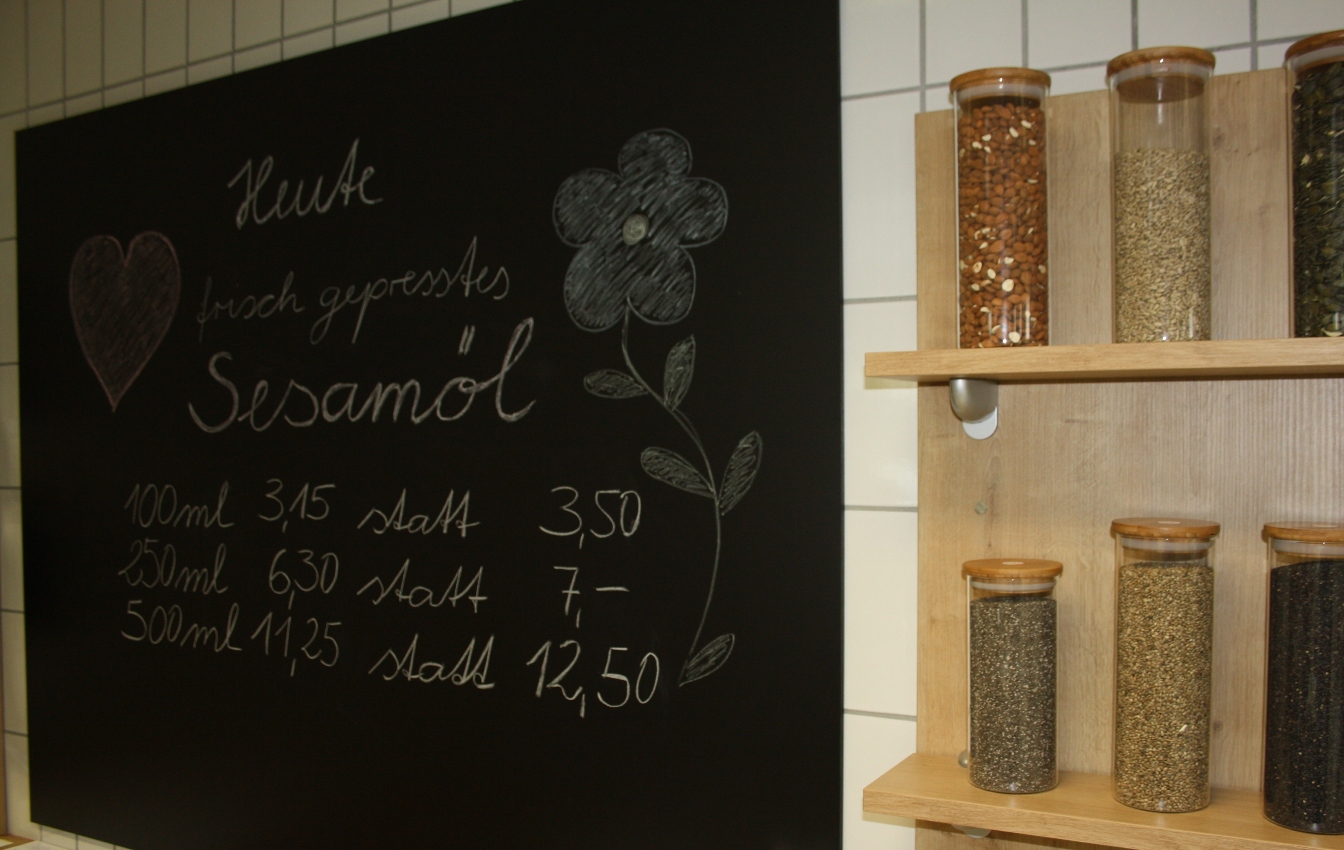 Heute
frisch gepresstes
Sesamöl
100ml 3,15 statt 3,50
250ml 6,30 statt 7,–
500ml 11,25 statt 12,50